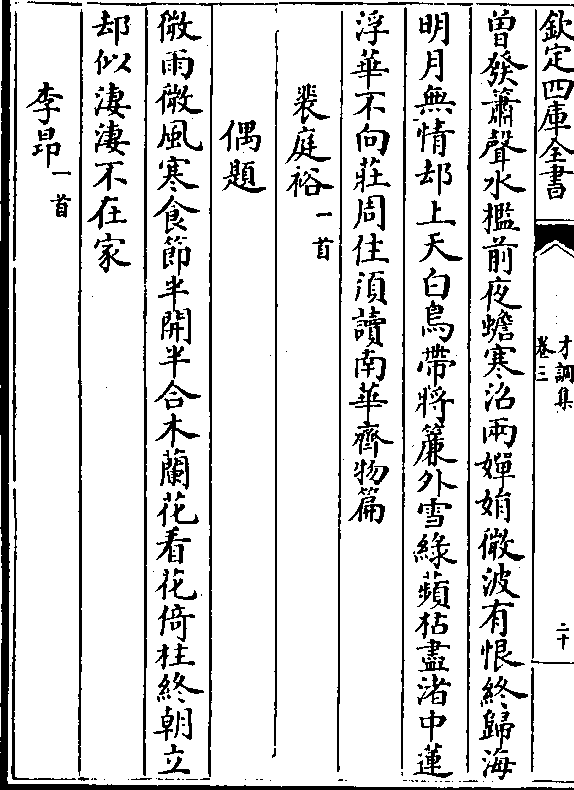 欽定四庫全書
才調集
卷三
二十
曽發簫聲水檻前夜蟾寒沼兩嬋娟微波有恨終歸海
明月無情却上天白鳥帶將簾外雪綠蘋枯盡渚中蓮
浮華不向莊周住須讀南華齊物篇
裴庭裕一首
偶題
微雨微風寒食節半開半合木蘭花看花倚柱終朝立
却似淒淒不在家
李昂一首